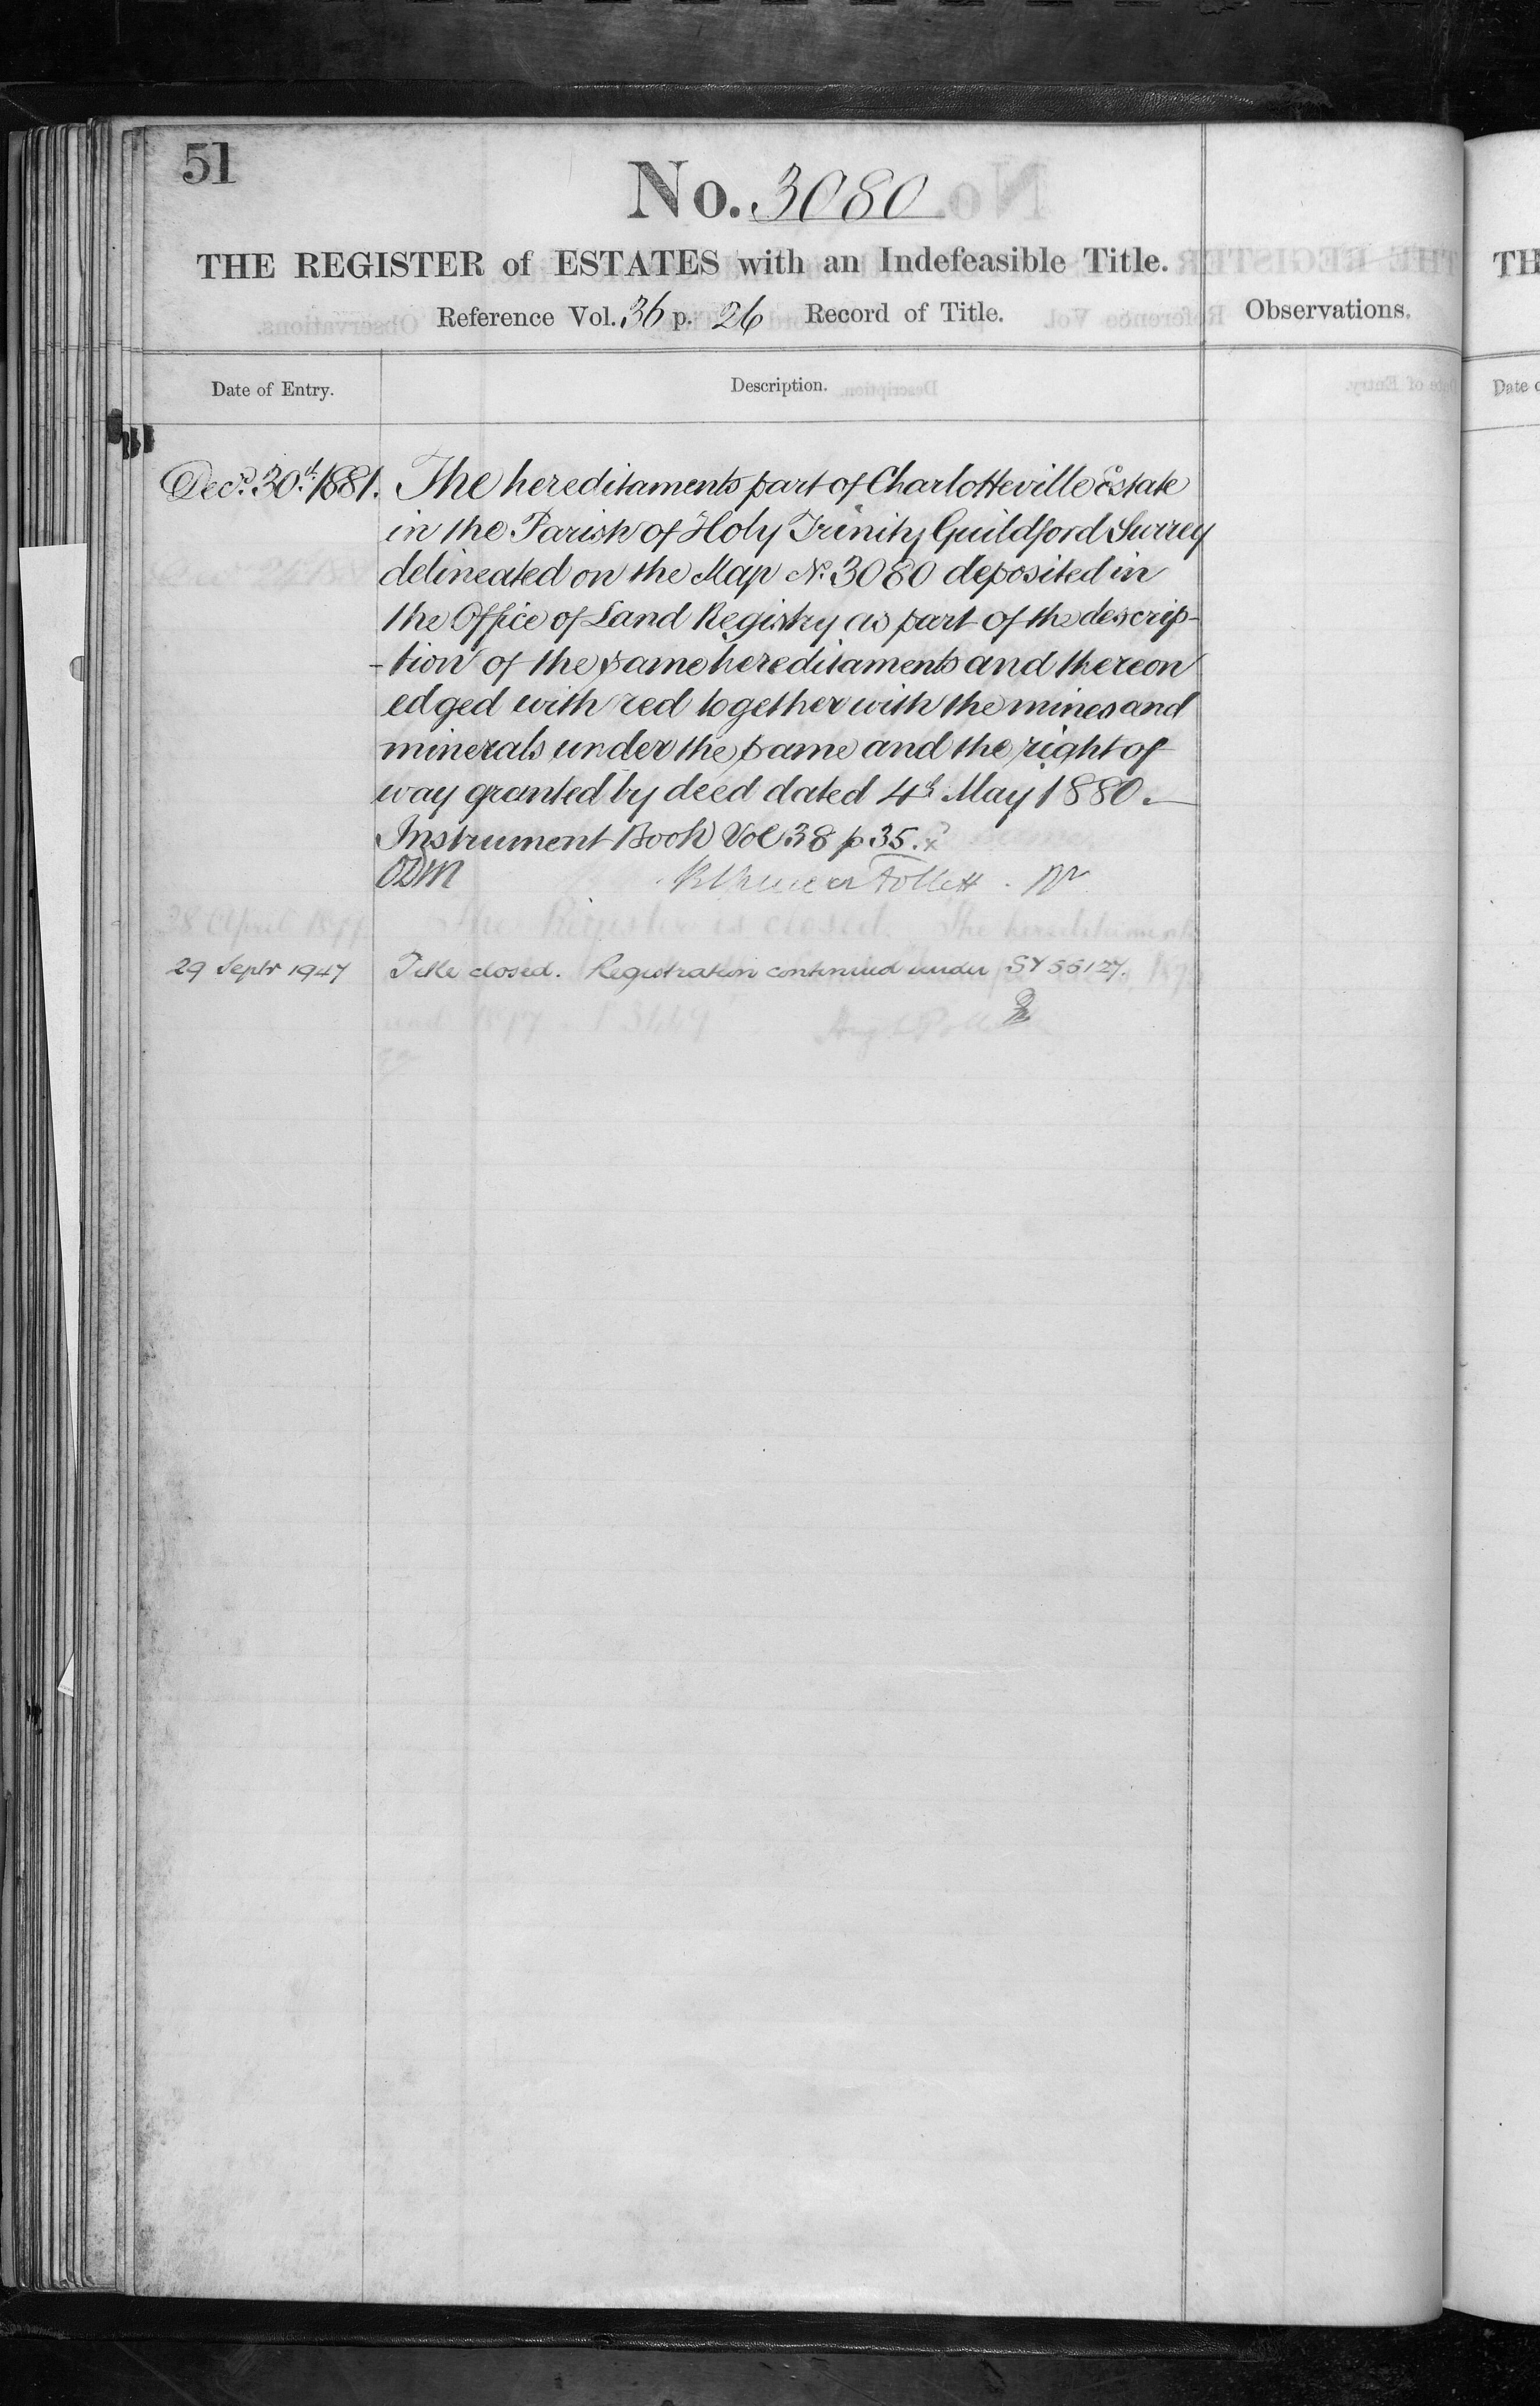 51
No. 3080
THE REGISTER of ESTATES with an Indefeasible Title.
Reference Vol. 36 p. 26 Record of Title.
Observations.
Date of Entry.
Description.
Decr. 30th 1881. The hereditaments part of Charlotteville Estate
in the Parish of Holy Trinity Guildford Surrey
delineated on the Map No. 3080 deposited in
the Office of Land Registry as part of the descrip-
-tion of the same hereditaments and thereon
edged with red together with the mines and
minerals under the same and the right of
way granted by deed dated 4th May 1880.—
Instrument Book Vol 38 p 35.
ODM
Follett
29 Septr 1947 Title closed. Registration continued under SY 55127.
TH
Date o